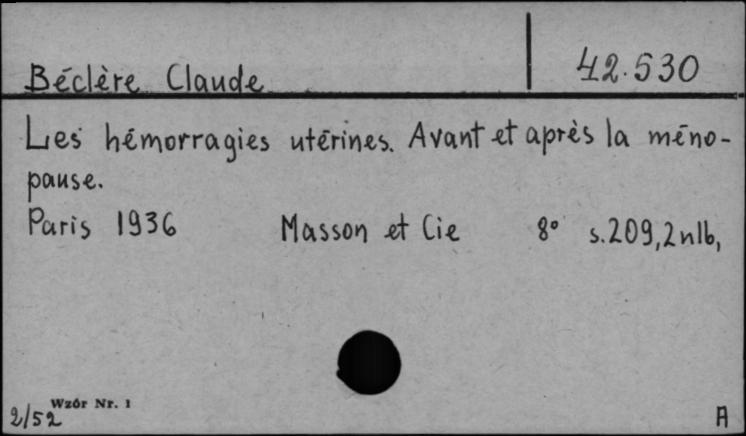 Béclère Claude
42.530
Les hémorragies utérines. Avant et après la méno-
pause.
Paris 1936 Masson et Cie 8° s.209,2nlb,
Wzór Nr. 1
2/52
A